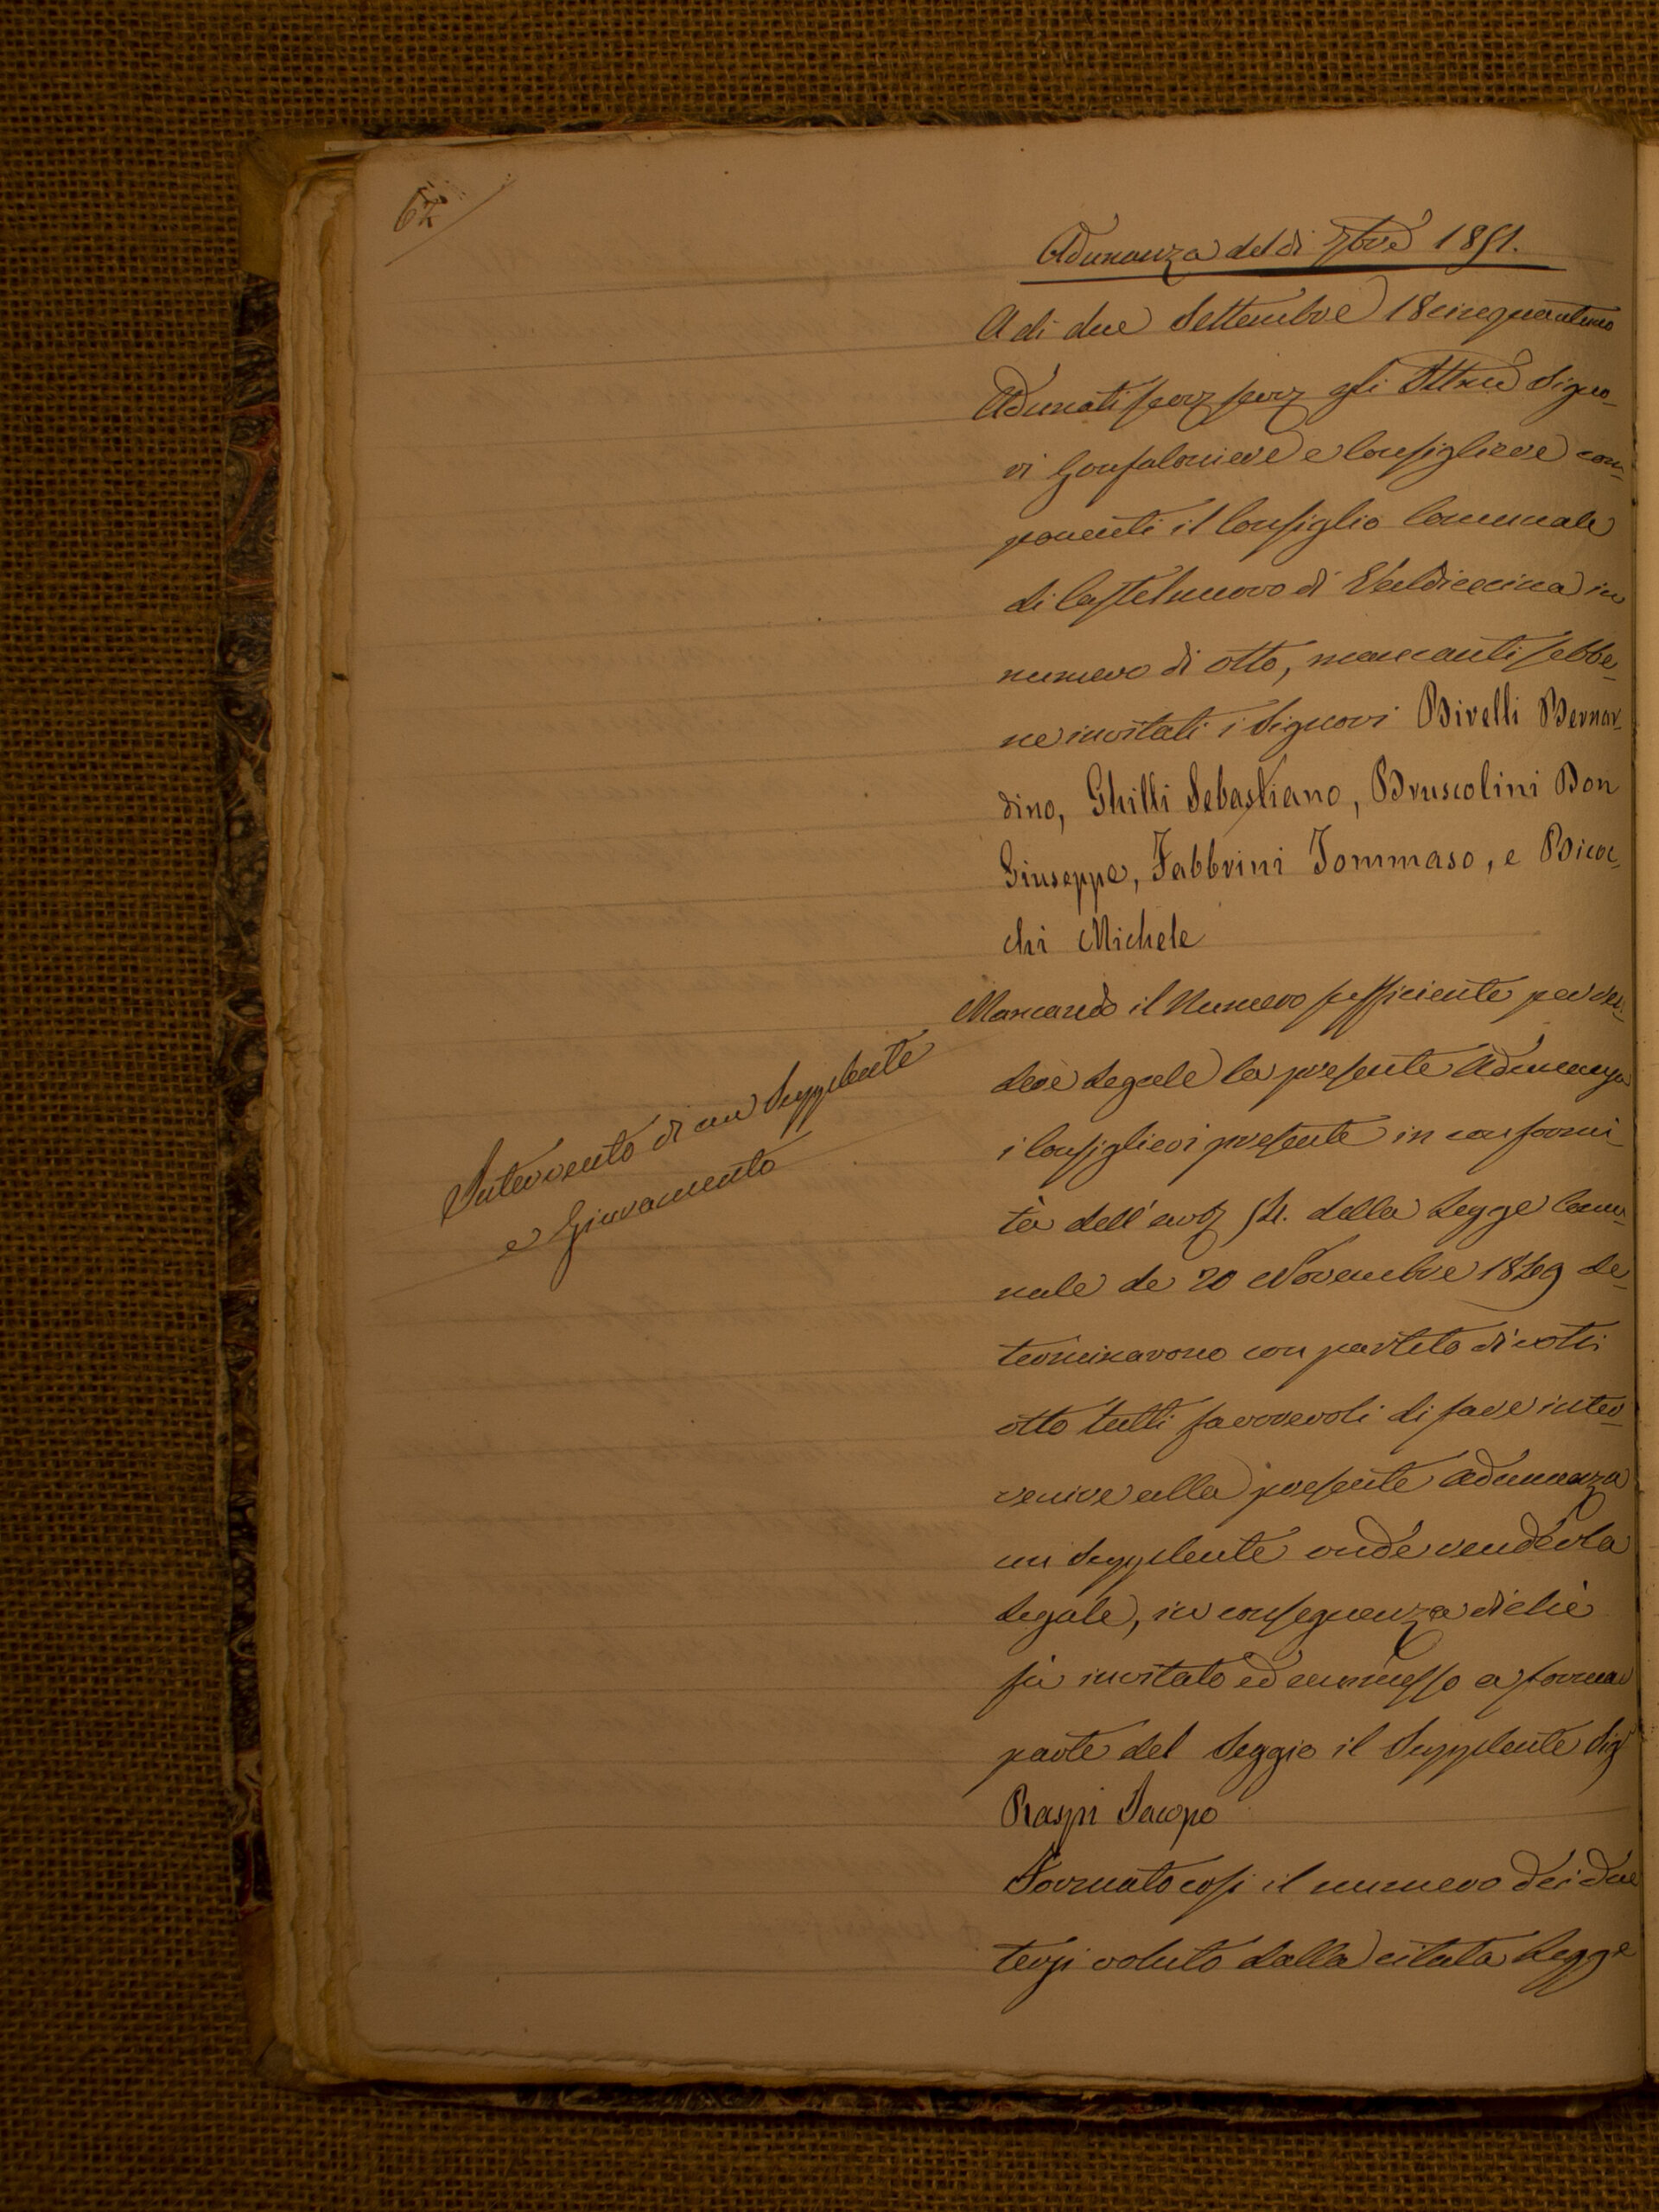 62
Adunanza del dì 7bre 1851.
A di due Settembre 18cinquantuno
Adunati serv serv gli Ittmi Signo-
ri Gonfaloniere e Consigliere com-
ponenti il Consiglio Comunale
di Castelnuovo di Valdicecina in
numero di otto, mancanti sebbe-
ne invitati i Signori Birelli Bernar-
dino, Ghilli Sebastiano, Bruscolini Don
Giuseppe, Fabbrini Tommaso, e Bicoc-
chi Michele
Mancando il Numero sufficiente per ren-
dere Legale la presente Adunanza
i Consiglieri presente in conformi-
tà dell' art 54. della Legge Comu-
nale de 20 Novembre 1849 de-
terminarono con partito di voti
otto tutti favorevoli di fare inter-
venire alla presente adunanza
un Supplente onde renderla
Legale, in conseguenza di che
fù invitato ed ammesso a formar
parte del Seggio il Supplente Sig
Raspi Jacopo
Formato cosi il numero dei due
terzi voluto dalla citata Legge
Intervento di un Supplente
e Giuramento